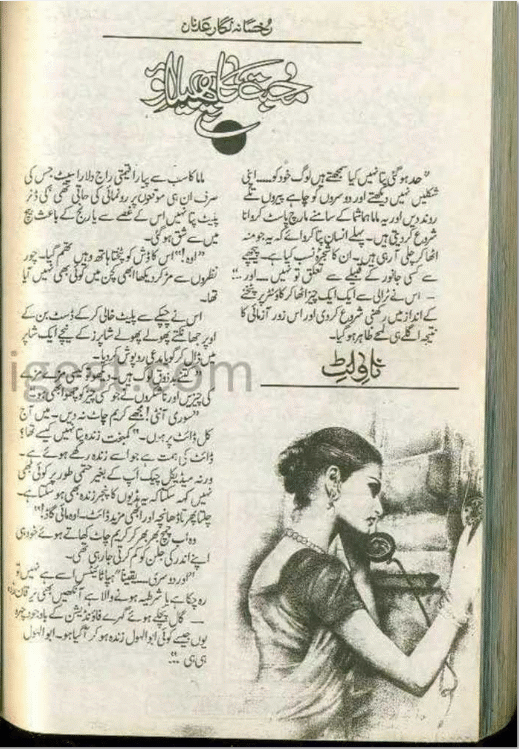 رخسانہ نگار عدنان
محبت کا پھیلاؤ
"حد ہو گئی پتا نہیں کیا سمجھتے ہیں لوگ خود کو...... اپنی
شکلیں نہیں دیکھتے اور دوسروں کو چاہے پیروں تلے
روند دیں اور یہ ماما ہماشما کے سامنے مارچ پاسٹ کروانا
شروع کر دیتی ہیں۔ پہلے انسان پتا کروائے کہ یہ جو منہ
اٹھا کر چلی آ رہی ہیں۔ ان کا شجرہ نسب کیا ہے۔ پیچھے
سے کسی جانور کے قبیلے سے تعلق تو نہیں — اور ..."
— اس نے ٹرالی سے ایک ایک چیز اٹھا کر کاؤنٹر پر پٹخنے
کے انداز میں رکھنی شروع کر دی اور اس زور آزمائی کا
نتیجہ اگلے ہی لمحے ظاہر ہو گیا۔
ناولٹ
ماما کا سب سے پیارا قیمتی راج دلارا سیٹ جس کی
صرف ان ہی موقعوں پر رونمائی کی جاتی تھی کی ڈنر
پلیٹ پتا نہیں اس کے غصے سے یا رنج کے باعث بیچ
میں سے شق ہو گئی۔
"اوہ!" اس کا ... پٹختا ہاتھ وہیں تھم گیا۔ چور
نظروں سے مڑ کر دیکھا ابھی کچن میں کوئی بھی نہیں آیا
تھا۔
اس نے چپکے سے پلیٹ خالی کر کے ڈسٹ بن کے
اوپر جھانکتے پھولے پھولے شاپرز کے نیچے ایک شاپر
میں ڈال کر گویا مدعی روپوش کر دیا۔
بد ذوق لوگ ہیں۔
کی چیزیں اور ناشکروں نے جو کسی چیز کو چھوا بھی ہو۔
"سوری آنٹی! مجھے کریم چاٹ نہ دیں۔ میں آج
کل ڈائٹ پر ہوں۔" کمبخت زندہ پتا نہیں کیسے تھا؟
ڈائٹ کی ہمت ہے جو اسے زندہ رکھے ہوئے ہے۔
ورنہ میڈیکل چیک اپ کے بغیر حتمی طور پر کوئی بھی
نہیں کہہ سکتا کہ یہ ہڈیوں کا پنجر زندہ بھی ہو سکتا ہے۔
چلتا پھرتا ڈھانچہ اور ابھی مزید ڈائٹ۔ اوہ مائی گاڈ!"
وہ اب چمچ بھر بھر کر کریم چاٹ کھاتے ہوئے خود ہی
اپنے اندر کی جلن کو کم کرتی جا رہی تھی۔
"اور دوسری۔ یقیناً ہیپاٹائیٹس اسے ہے نہیں تو
رہ چکا ہے یا شرطیہ ہونے والا ہے آنکھیں بھی یرقان زدہ
— گال پچکے ہوئے گہرے فاؤنڈیشن کے باوجود چہرہ
یوں جیسے کوئی ابوالہول زندہ ہو کر آ گیا ہو۔ ابوالہول
ہی ہی ..."
igest.com